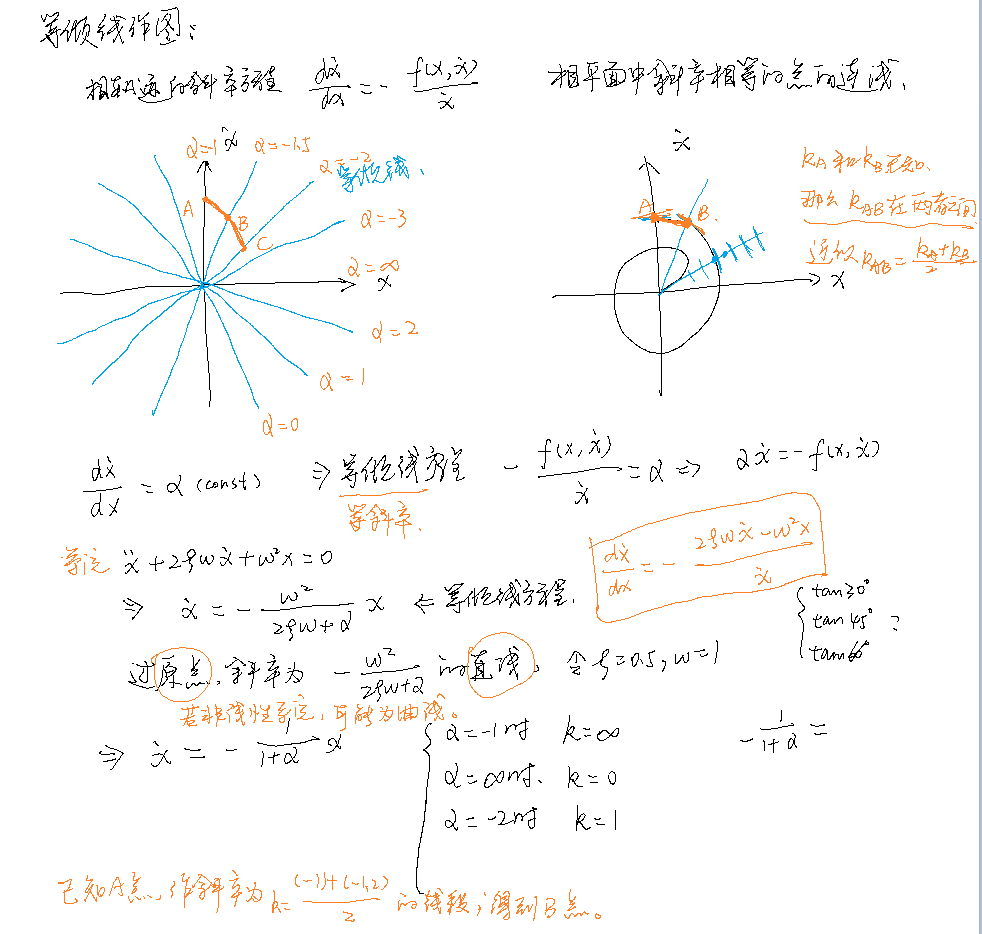 等倾线作图:
相轨迹的斜率方程 dẋ/dx = - f(x,ẋ)/ẋ 相平面中斜率相等的点的连线.
α=-1 ẋ α=-1.5
α=-2
等倾线.
A
B
C
α=-3
α=∞
x
α=2
α=1
α=0
ẋ
A
B.
x
kA和kB已知.
那么kAB在两者之间
近似kAB = (kA+kB)/2
dẋ/dx = α (const) ⇒ 等倾线方程 - f(x,ẋ)/ẋ = α ⇒ αẋ = -f(x,ẋ)
等斜率.
ẍ+2ζωẋ+ω²x=0
dẋ/dx = - (2ζωẋ-ω²x)/ẋ
⇒ ẋ = - ω²/(2ζω+α) x ⇐ 等倾线方程.
{ tan30° tan45° tan60° :
过原点,斜率为 - ω²/(2ζω+α) 的直线. 令ζ=0.5, ω=1
若非线性系统,可能为曲线。
⇒ ẋ = - 1/(1+α) x
{ α=-1时 k=∞
α=∞时. k=0
α=-2时 k=1
- 1/(1+α) =
已知A点,作斜率为 k= ((-1)+(-1.2))/2 的线段,得到B点。